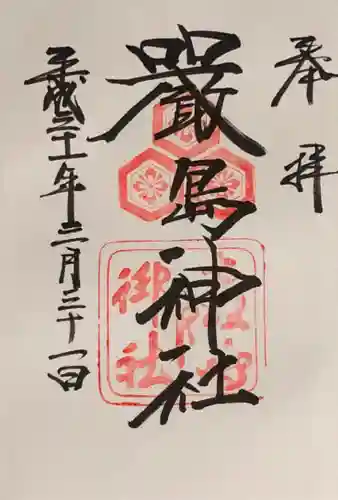 奉拝
嚴島神社
平成三十一年三月三十一日